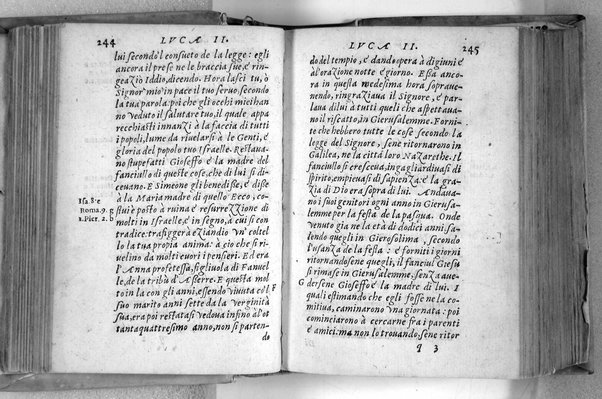 244
LVCA II.
lui secondo'l consueto de la legge: egli
ancora il prese ne le braccia sue, e rin-
gratiò Iddio, dicendo. Hora lasci tu, ò
Signor' mio'n pace il tuo seruo, secondo
la tua parola: poi che gli occhi miei han-
no veduto il salutare tuo, il quale appa
recchiasti innanzi à la faccia di tutti
i popoli, lume da riuelarsi à le Genti, e
gloria del popolo tuo Israelle. Restaua-
no stupefatti Gioseffo e la madre del
fanciullo di queste cose, che di lui si di-
ceuano. E Simeone gli benedisse, e disse
à la Maria madre di questo Ecco, co-
stui è posto à ruina e resurrezzione di
molti in Israelle, e'n segno, à cui si con-
tradice: trafiggerà eziandio vn' coltel
lo la tua propia anima: à cio che si ri-
uelino da molti cuori i pensieri. Ed era
l'Anna profetessa, figliuola di Fanuel-
le, de la tribu d'Asserre. E questa mol
to'n la con gli anni, essendo viuuta col
suo marito anni sette da la verginità
sua, era poi restatasi vedoua infino à l'ot
tantaquattresimo anno, non si parten-
do
Isa. 8. e
Roma. 9. g
1. Piet. 2. b
F
LVCA II.
245
do del tempio, e dando opera à digiuni e
à l'orazioni notte e giorno. Essa anco-
ra in questa medesima hora soprauue-
nendo, ringraziaua il Signore, e par-
laua di lui à tutti quelli che aspettaua-
no il riscatto, in Gierusalemme. Forni-
te che hebbero tutte le cose secondo la
legge del Signore, sene ritornarono in
Galilea, ne la città loro Nazarethe. Il
fanciullo si cresceua, ingagliardiuasi di
spirito, empieuasi di sapienza: e la gra-
zia di Dio era sopra di lui. Andaua-
no i suoi genitori ogni anno in Gierusa-
lemme per la festa de la pasqua. Onde
venuto gia ne la età di dodici anni, sa-
lendo quegli in Gierosolima, secondo
l'usanza de la festa: e forniti i giorni
ritornandosene quegli, il fanciul Giesu
si rimase in Gierusalemme, senza aue-
dersene Gioseffo e la madre di lui. I
quali estimando che egli fosse ne la co-
mitiua, caminarono vna giornata: poi
cominciarono à cercarne fra i parenti
e amici: ma non lo trouando, sene ritor
G
q 3